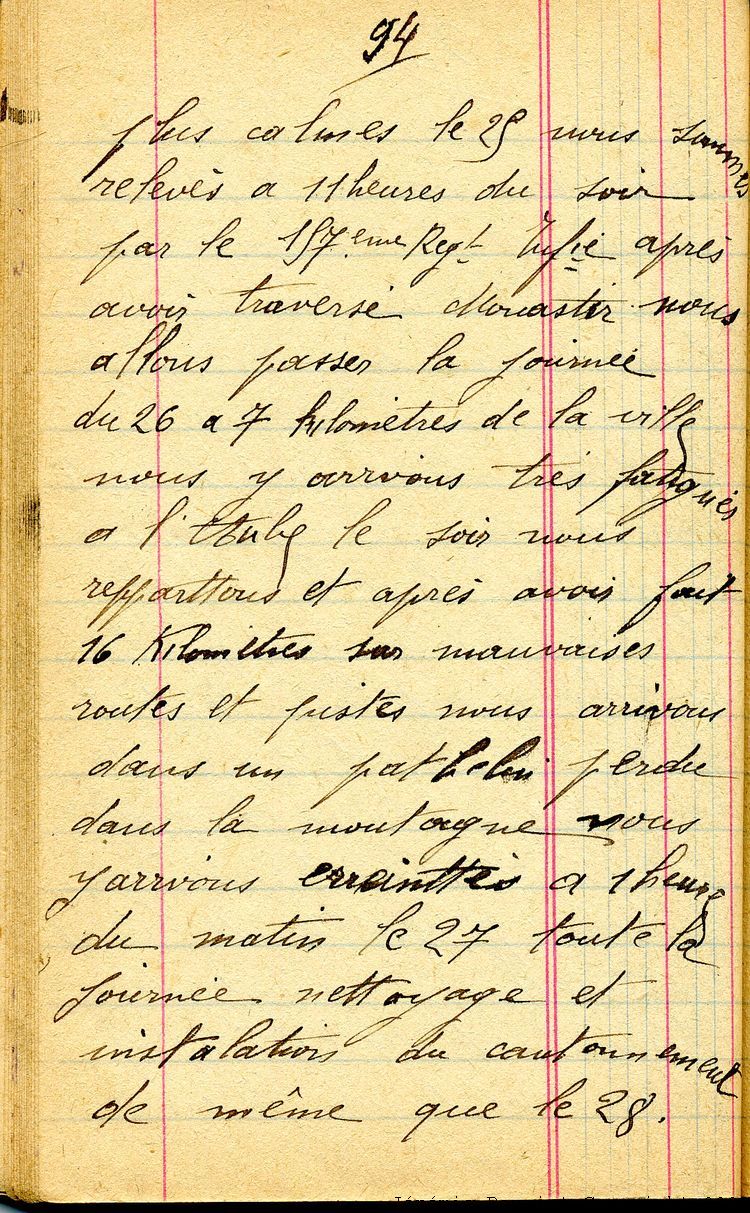 94
plus calmes le 25 nous sommes
relevés a 11 heures du soir
par le 157eme Regt Infie après
avoir traversé Monastir nous
allons passer la journée
du 26 a 7 kilomètres de la ville
nous y arrivons très fatigués
a l'Aube le soir nous
reppartons et après avoir fait
16 Kilomètres sur mauvaises
routes et pistes nous arrivons
dans un patbelin perdu
dans la montagne nous
y arrivons erreinttés a 1 heure
du matin le 27 toute la
journée nettoyage et
instalation du cantonnement
de même que le 28.